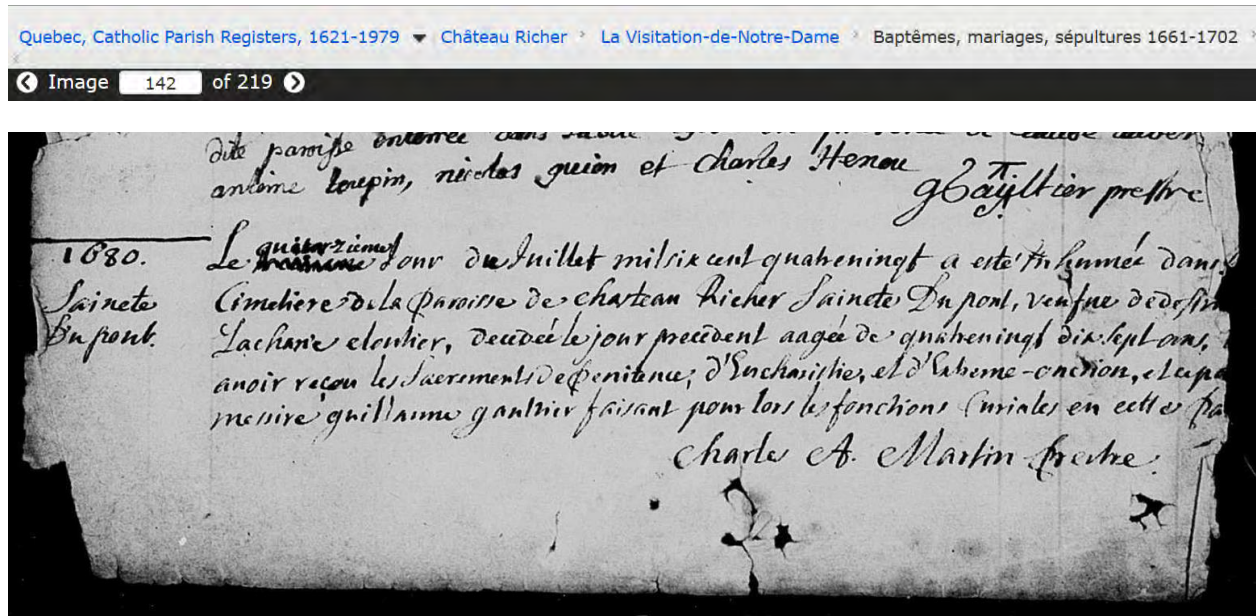 Quebec, Catholic Parish Registers, 1621-1979 Château Richer La Visitation-de-Notre-Dame Baptêmes, mariages, sépultures 1661-1702
Image 142 of 219
dite paroisse enterrée dans
antoine toupin, nicolas quion et charles Henou
gGaultier prestre
1680. Le quinzieme Jour du Juillet milsix cent quatrevingt a esté Inhumée dans
Saincte Cimetiere de la Paroisse de chasteau Richer Saincte Dupont, veufue de defun
Dupont. Zacharie cloutier, decedée le jour precedent aagée de quatrevingt dix sept ans,
avoir reçeu les Sacrements de Penitence, d'Eucharistie, et d'Extreme-onction, et ce pa
messire guillaume gaultier faisant pour lors les fonctions Curiales en cette Pa
Charle A. Martin Prestre.